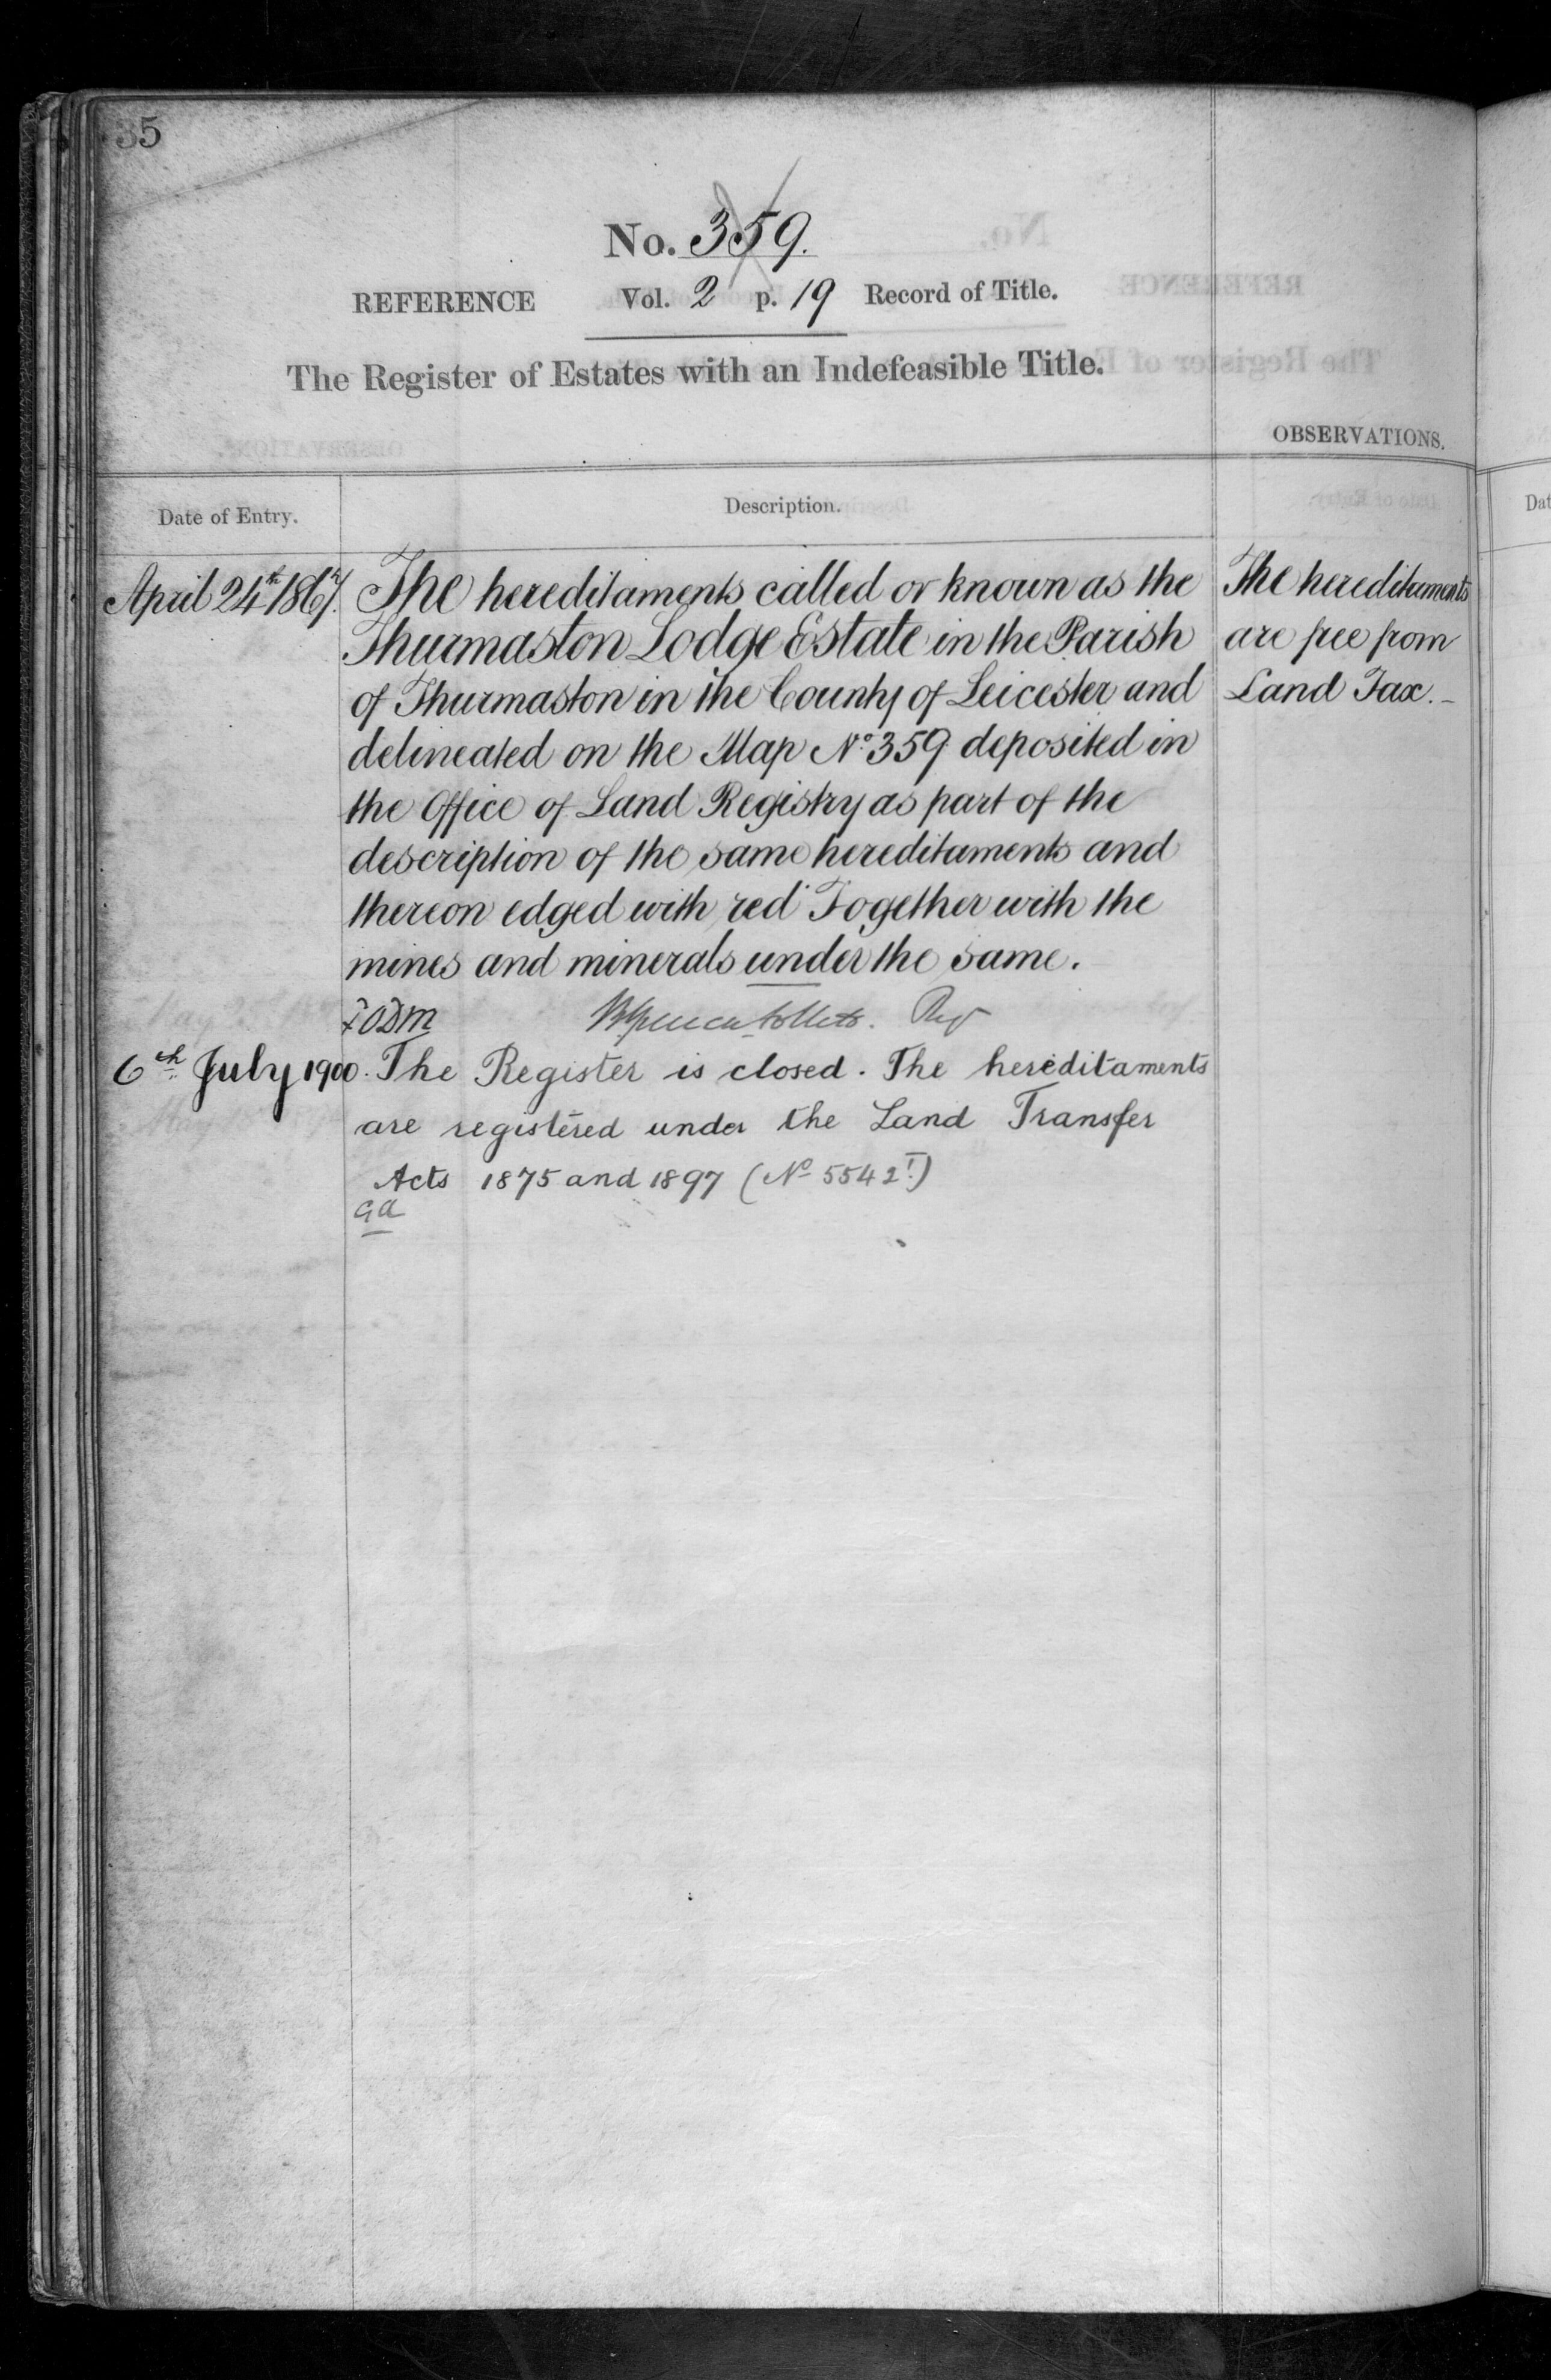 35
No. 359.
REFERENCE Vol. 2 p. 19 Record of Title.
The Register of Estates with an Indefeasible Title.
OBSERVATIONS.
Date of Entry. Description.
April 24th 1867. The hereditaments called or known as the
Thurmaston Lodge Estate in the Parish
of Thurmaston in the County of Leicester and
delineated on the Map No. 359 deposited in
the Office of Land Registry as part of the
description of the same hereditaments and
thereon edged with red Together with the
mines and minerals under the same.
The hereditaments
are free from
Land Tax.-
Reg
6th July 1900. The Register is closed. The hereditaments
are registered under the Land Transfer
Acts 1875 and 1897 (No 5542T.)
GA
Dat